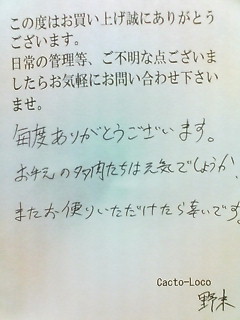 この度はお買い上げ誠にありがとう
ございます。
日常の管理等、ご不明な点ございま
したらお気軽にお問い合わせ下さい
ませ。
毎度ありがとうございます。
お手元の多肉たちは元気でしょうか
またお便りいただけたら幸いです。
Cacto-Loco
野末